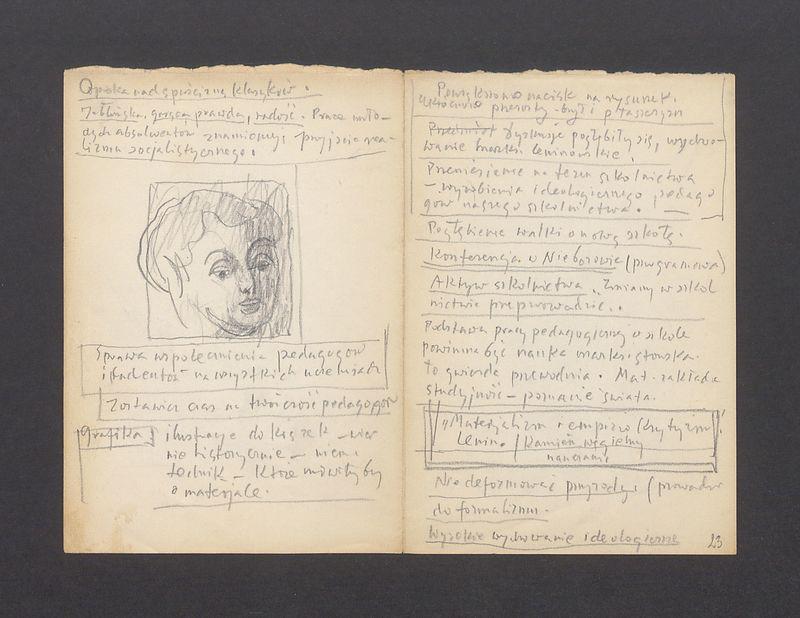 Opieka nad spuścizną klasyków.
gorąca prawda, radość. Prace mło-
dych absolwentów znamionują przyjście rea-
lizmu socjalistycznego.
Sprawa współcześnienia pedagogów
i studentów na wszystkich uczelniach
Zostawić czas na twórczość pedagogów
Grafika
ilustracje do książek – wier
nie historycznie –
technik – które mówiłyby
o materjale.
nacisk na rysunek.
Przedmiot dyskusje pogłębiły się, wycho-
wanie marks. leninowskie.
Przeniesienie na teren szkolnictwa
– wyrobienia ideologicznego pedago
gów naszego szkolnictwa. –
Pogłębienie walki o nową szkołę.
Konferencja w Nieborowie (programowa)
Aktyw szkolnictwa. Zmiany w szkol
nictwie przeprowadzić..
Podstawą pracy pedagogicznej w szkole
powinna być nauka marksistowska.
To gwiazda przewodnia. Mat. zakłada
studyjność – poznanie świata.
„Materjalizm i empirio krytyzm"
Lenin. / Kamień węgielny
nauczania
Nie deformować przyrody (prowadzi
do formalizmu.
Wysokie wychowanie ideologiczne
23